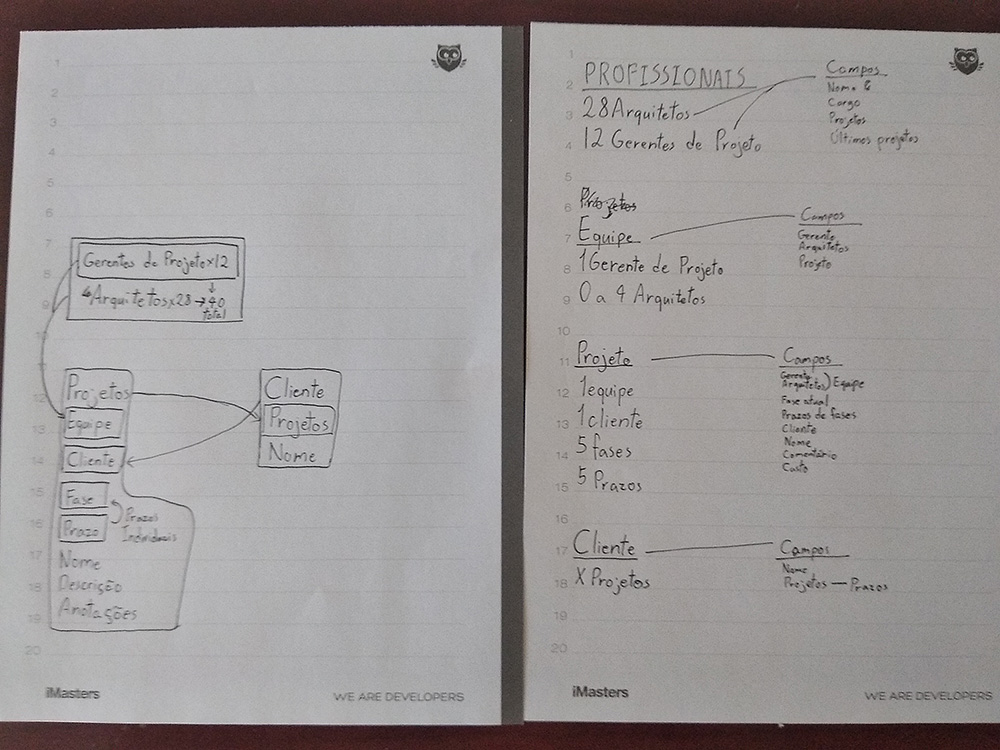 1
2
3
4
5
6
7
Gerentes de Projeto x12
8
Arquitetos x28 → 40
total
9
Projetos
12
Equipe
13
Cliente
14
Fase
15
Prazos
Individuais
Prazo
16
Nome
17
Descrição
18
Anotações
19
20
Cliente
Projetos
Nome
iMasters
WE ARE DEVELOPERS
1
PROFISSIONAIS
2
28 Arquitetos
3
12 Gerentes de Projeto
4
Campos
Nome
Cargo
Projetos
Últimos projetos
5
6
Projetos
Equipe
7
1 Gerente de Projeto
8
0 a 4 Arquitetos
9
Campos
Gerente
Arquitetos
Projeto
10
Projeto
11
1 equipe
12
1 cliente
13
5 fases
14
5 Prazos
15
Campos
Gerente
Arquitetos) Equipe
Fase atual
Prazos de fases
Cliente
Nome
Comentário
Custo
16
Cliente
17
X Projetos
18
Campos
Nome
Projetos — Prazos
19
20
iMasters
WE ARE DEVELOPERS